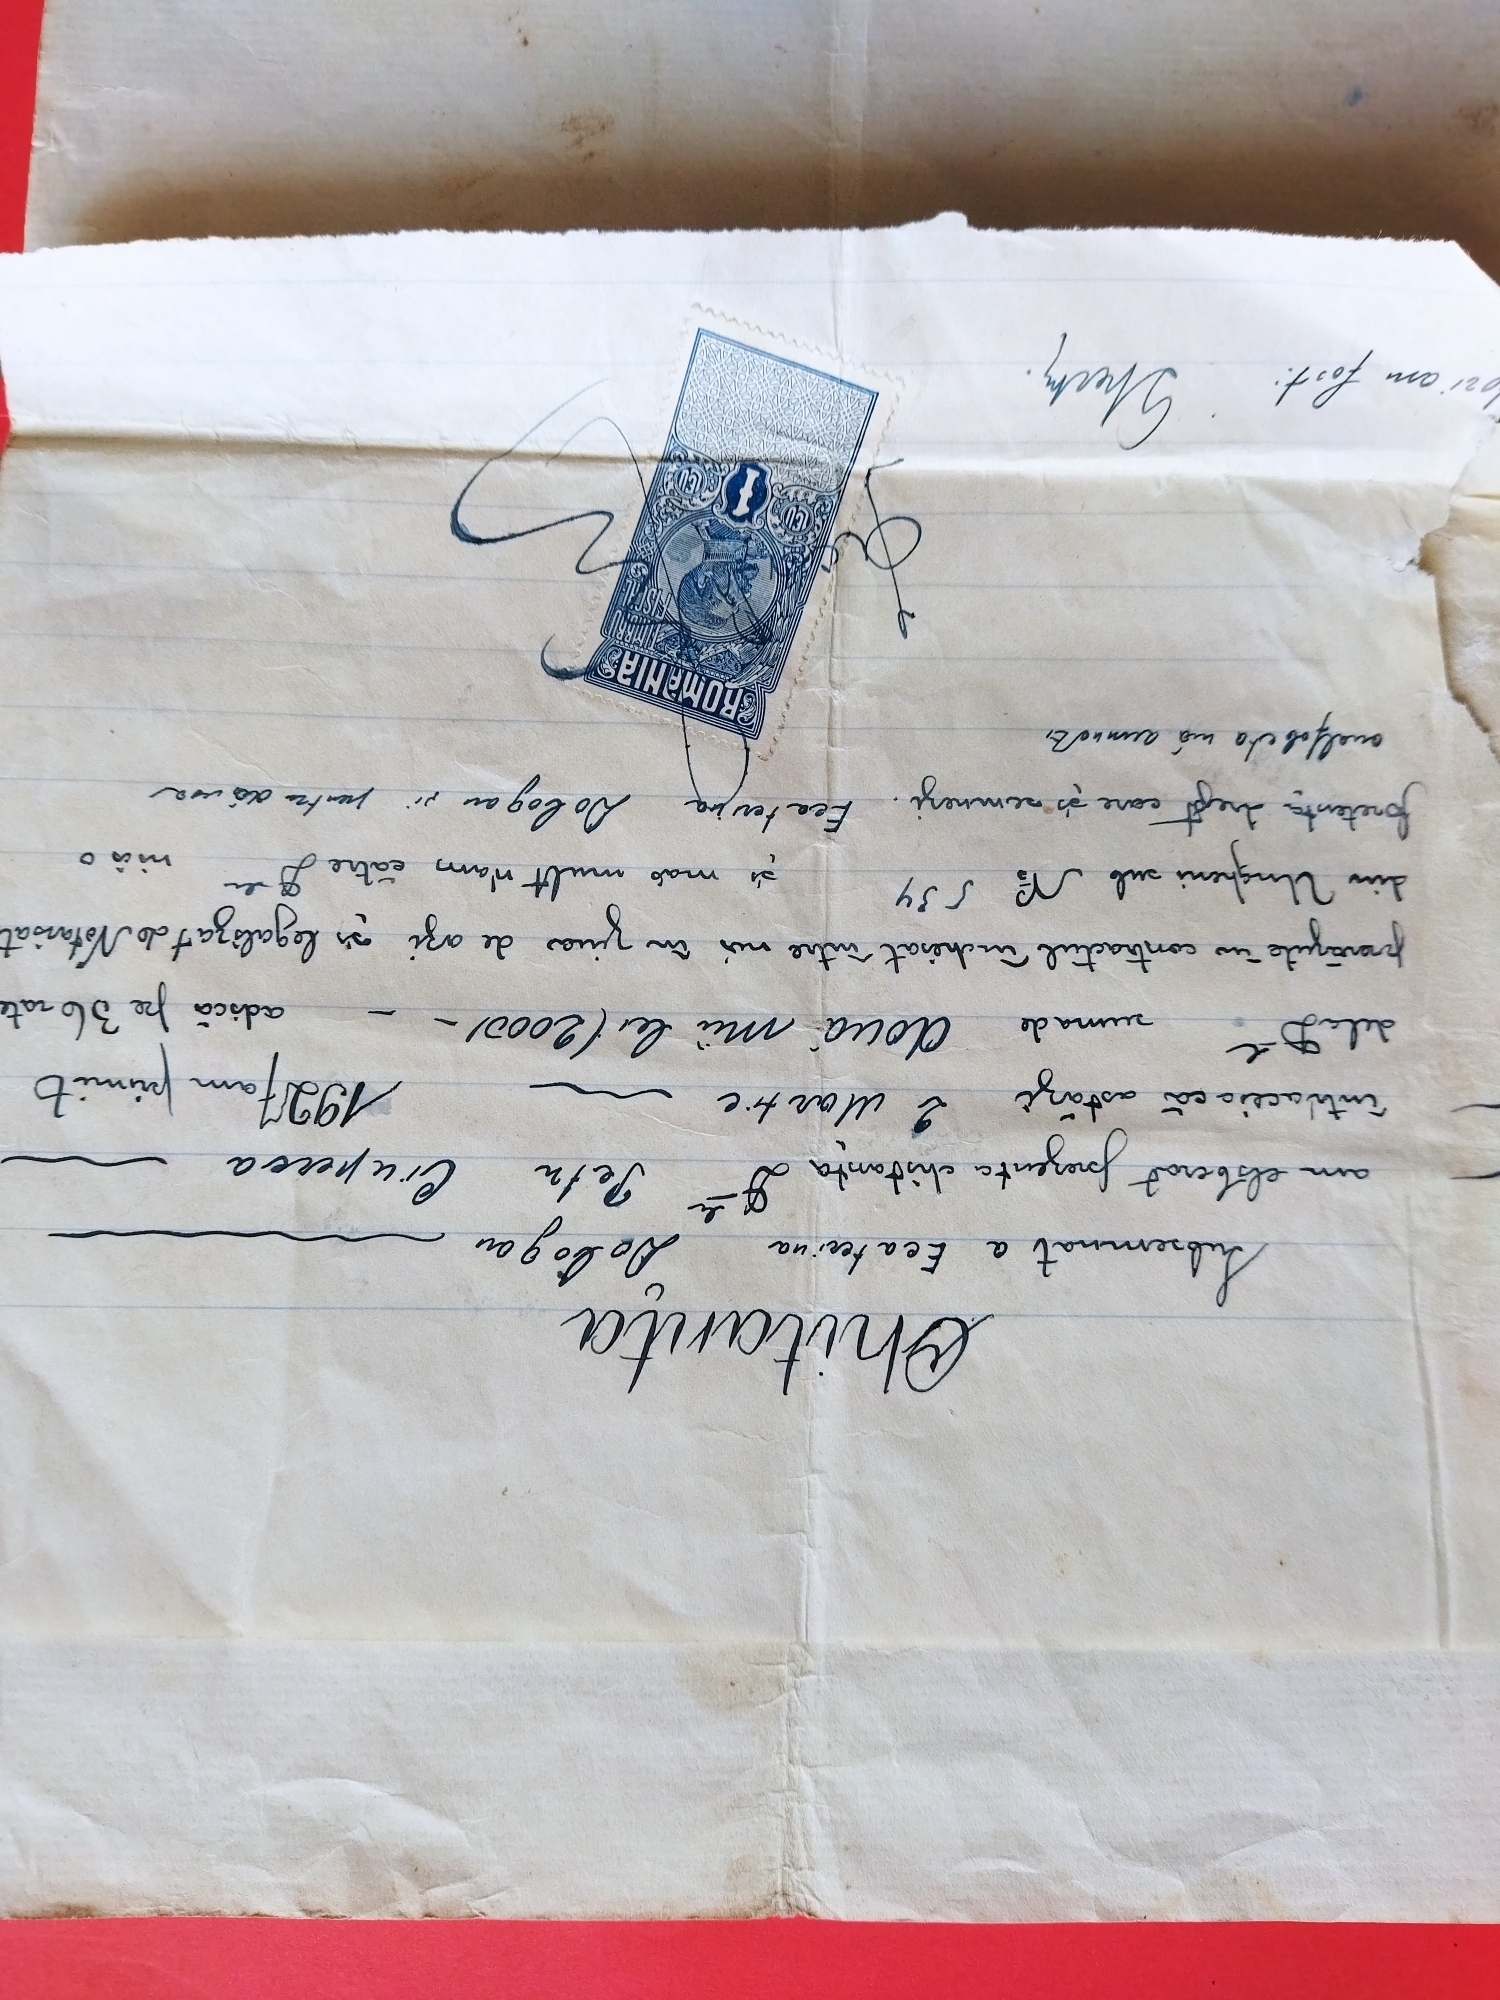 Chitanța
Subsemnat a Ecaterina Dologan
am eliberat prezenta chitanța Dlui Petru Ciuperca
întru aceia că astăzi 2 Martie 1927 am primit
dela Dl suma de două mii lei (2000) — — adică pe 3 6 rate
prevăzute în contractul încheiat între noi în ziua de azi și legalizat de Notariat
din Ungheni sub No 534 și mai mult n'am către Dlui nici o
pretenție drept care și semnez. Ecaterina Dologan și pentru dânsa
analfabeta mă semnez
ROMANIA
TIMBRU FISCAL
LEU 1 LEU
am fost: